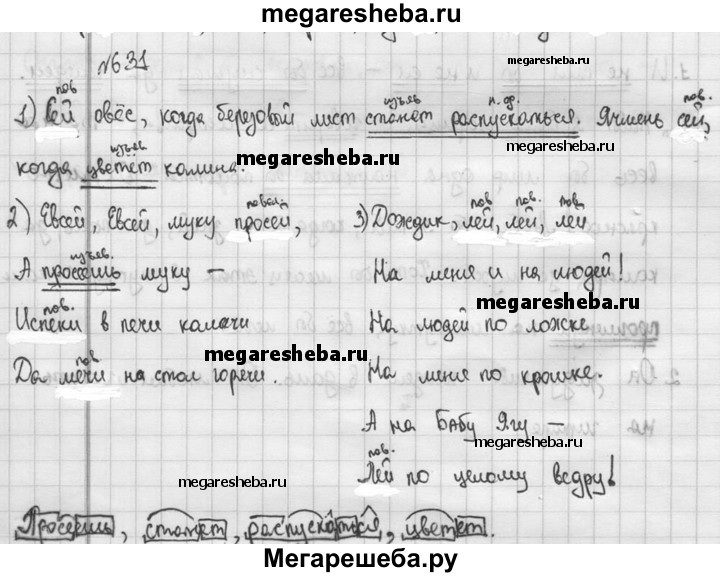 megaresheba.ru
№631
megaresheba.ru
пов изъяв н.ф. пов.
1) Сей овёс, когда березовой лист станет распускаться. Ячмень сей,
изъяв.
когда цветёт калина.
megaresheba.ru
2) Евсей, Евсей, муку просей,
изъяв.
А просеешь муку –
пов.
Испеки в печи калачи
megaresheba.ru
пов
Да мечи на стол горячи.
megaresheba.ru
пов. пов. пов.
3) Дождик, лей, лей, лей
На меня и на людей!
megaresheba.ru
На людей по ложке
На меня по крошке.
А на Бабу Ягу –
megaresheba.ru
пов.
Лей по целому ведру!
Просеешь, станет, распускаться, цветет.
Мегарешеба.ру